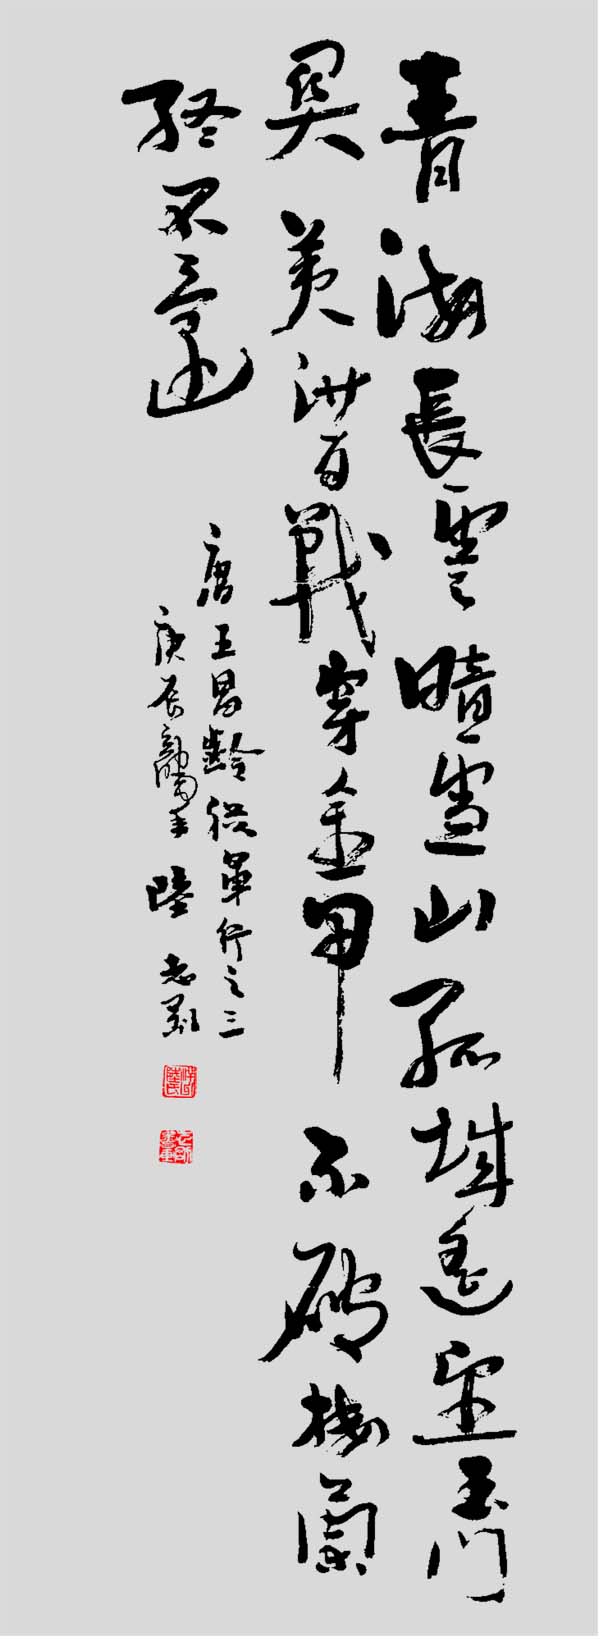 青海長雲暗雪山孤城遙望玉門
關黃沙百戰穿金甲不破樓蘭
終不還
唐王昌齡從軍行之三
庚辰 陸